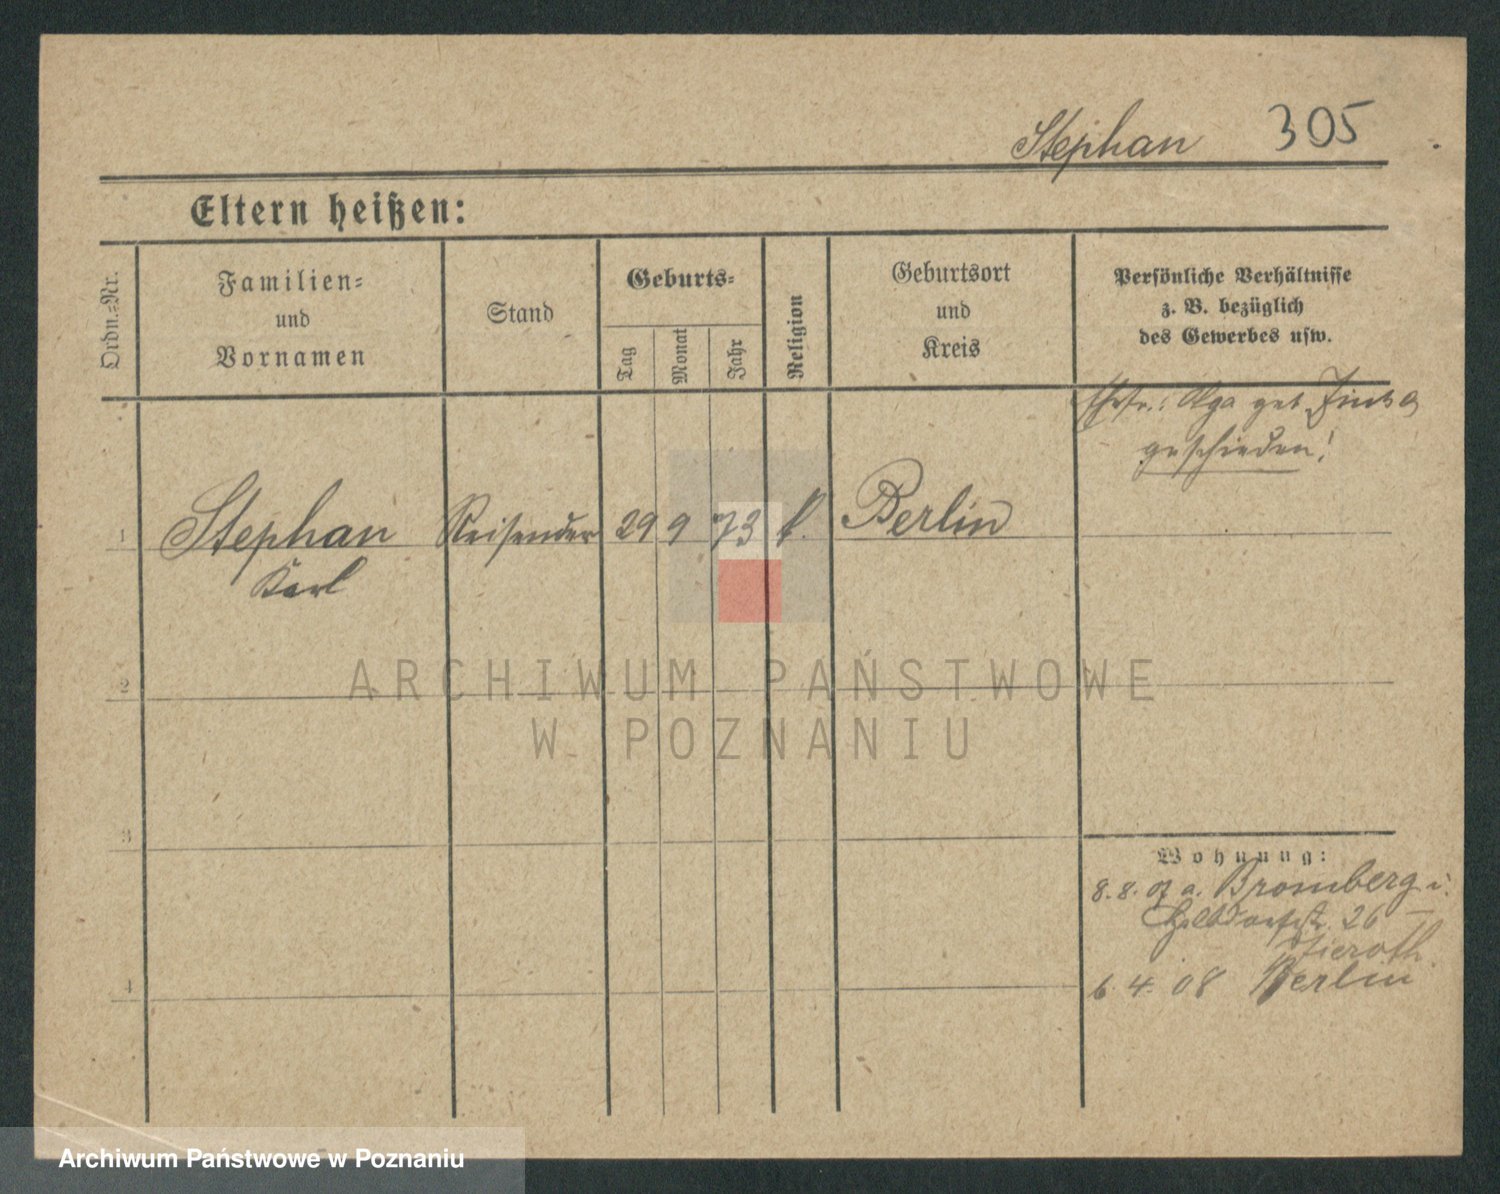 Stephan 305
Eltern heißen:
Ordn.=Nr.
Familien=
und
Vornamen
Stand
Geburts=
Tag
Monat
Jahr
Religion
Geburtsort
und
Kreis
Persönliche Verhältnisse
z. B. bezüglich
des Gewerbes usw.
Ehefr.: Olga geb.
geschieden!
1 Stephan Reisender 29 9 73 k. Berlin
Karl
2
3
4
Wohnung:
8. 8. 07 a. Bromberg
26
6. 4. 08 Berlin
ARCHIWUM PAŃSTWOWE
W POZNANIU
Archiwum Państwowe w Poznaniu